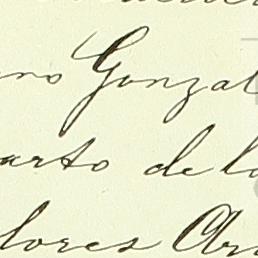 no Gonzal
arto de l
lores Ar